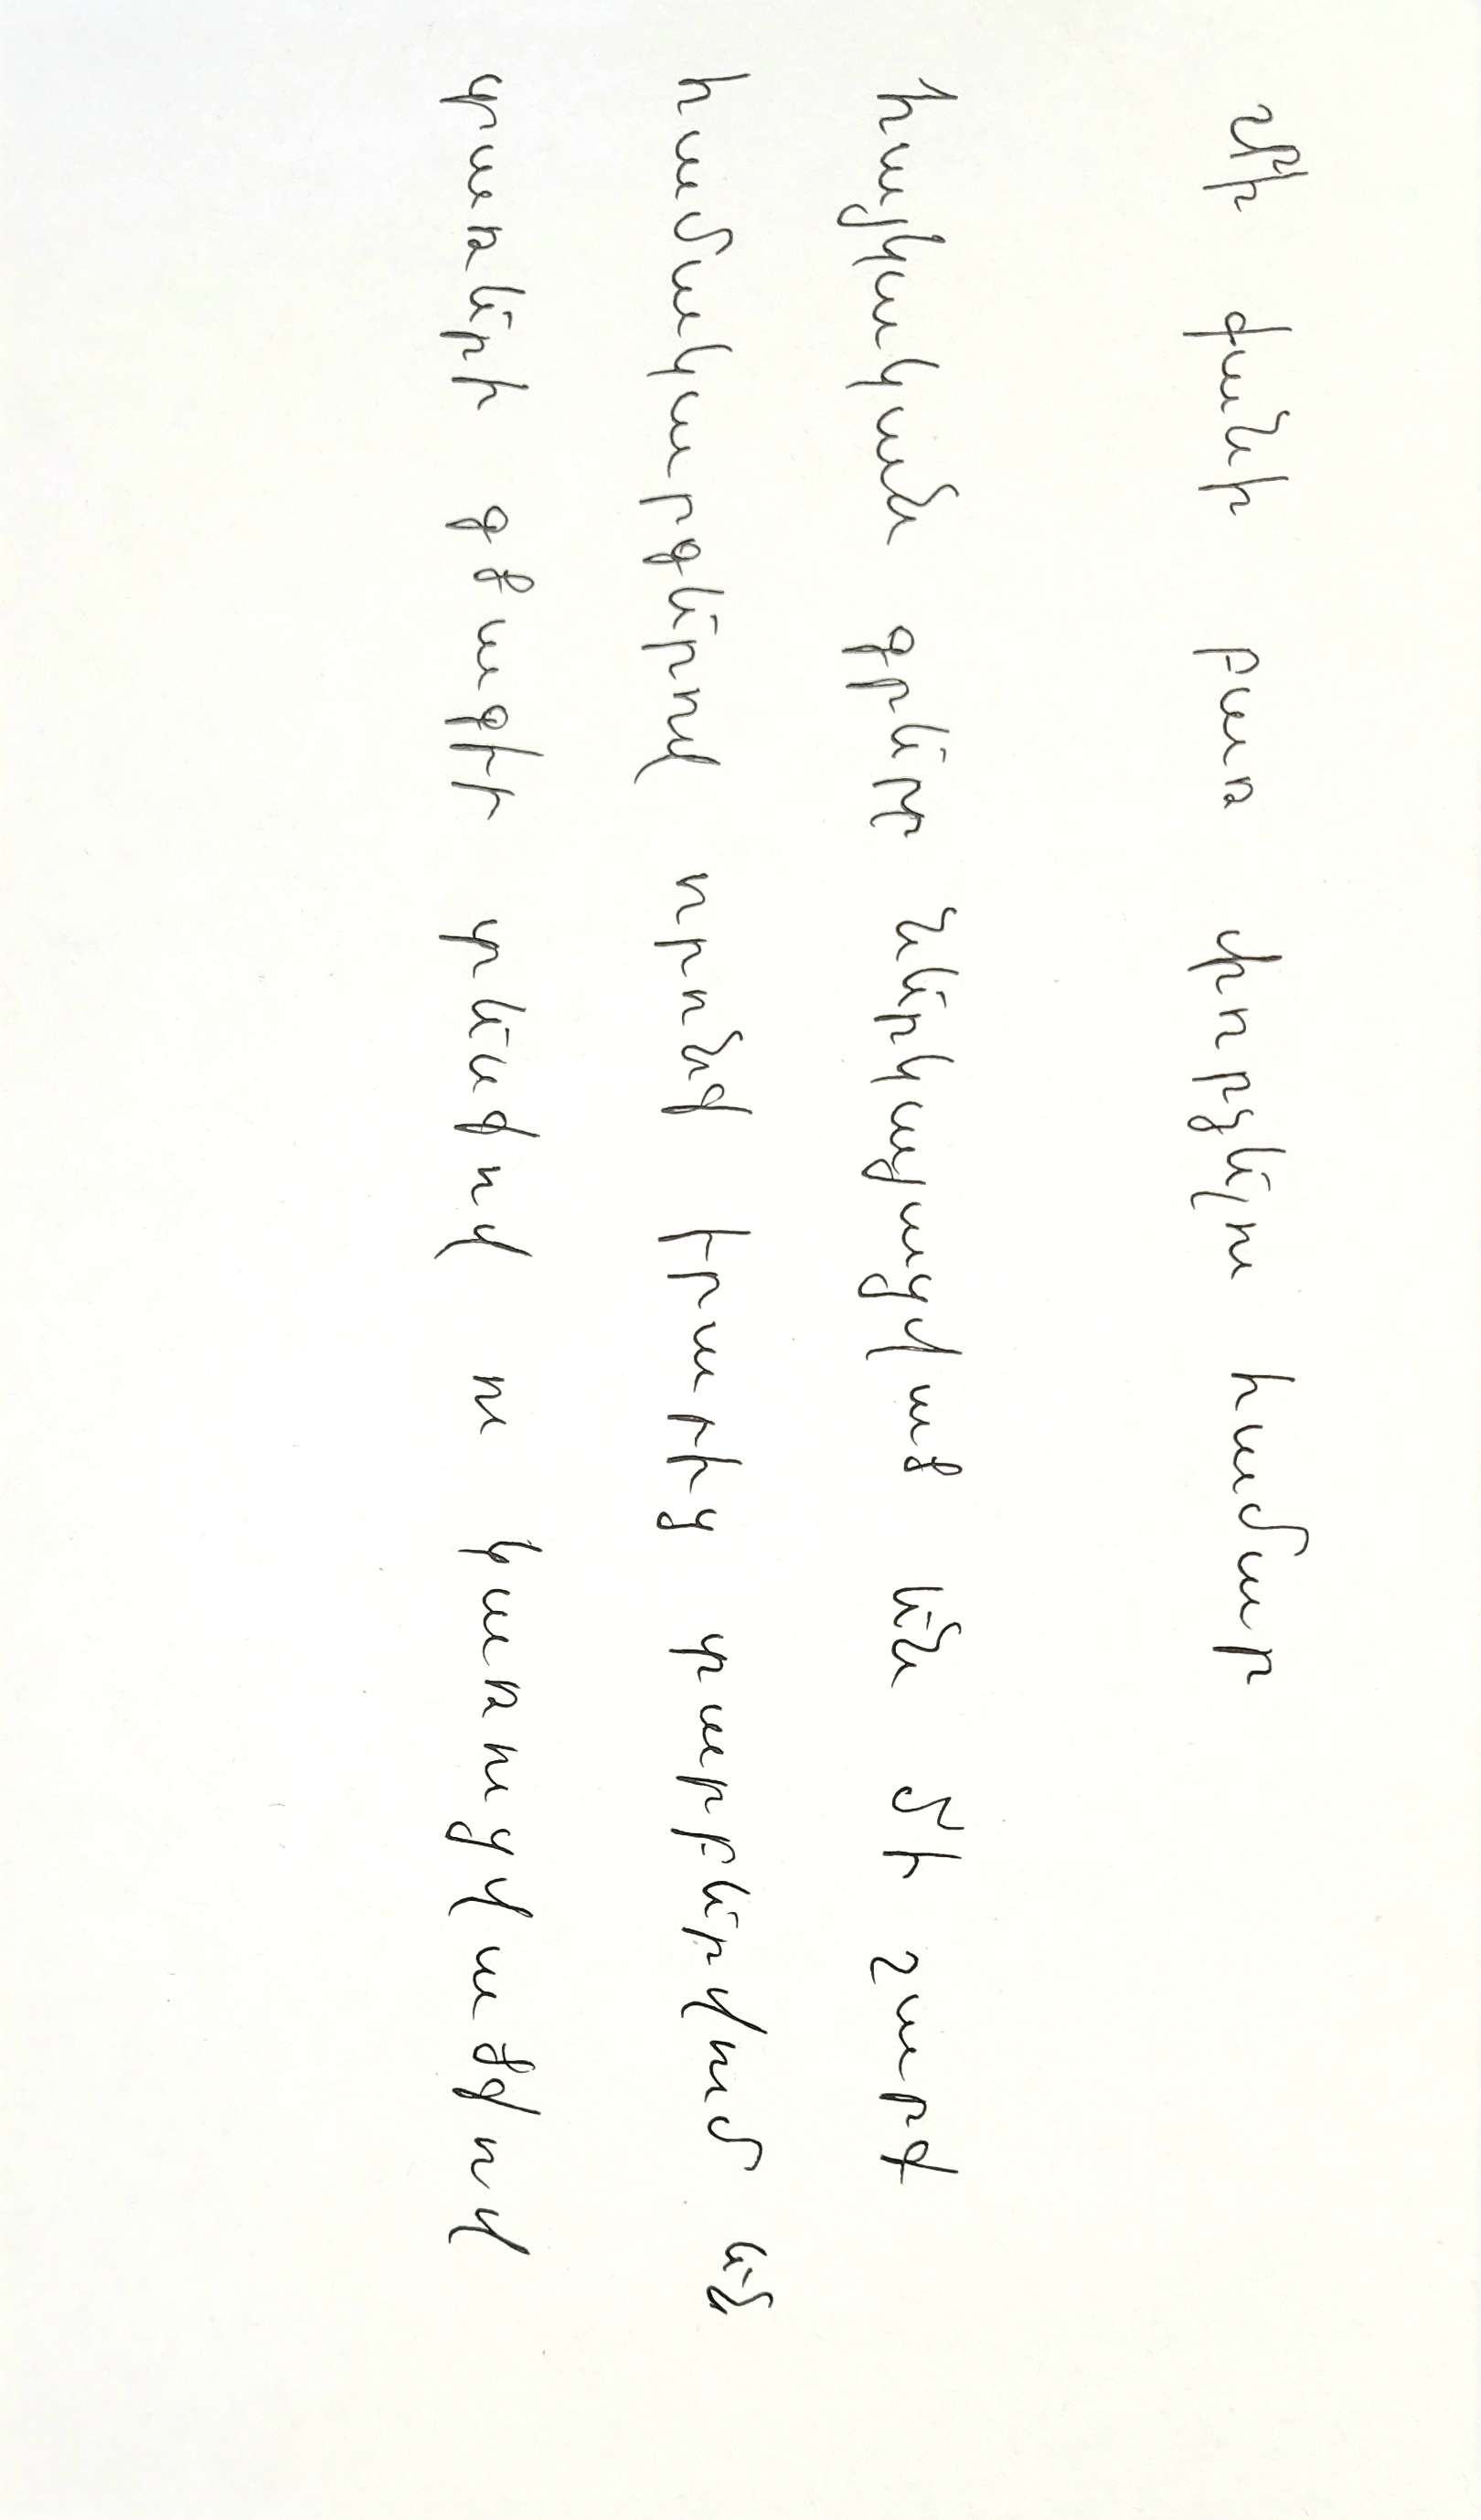 Մի քանի բառ փորձելու համար
հայկական գրերը ներկայացված են մի շարք
համակարգերով որոնք իրարից տարբերվում են
տառերի գծագիր տեսքով ու կառուցվածքով